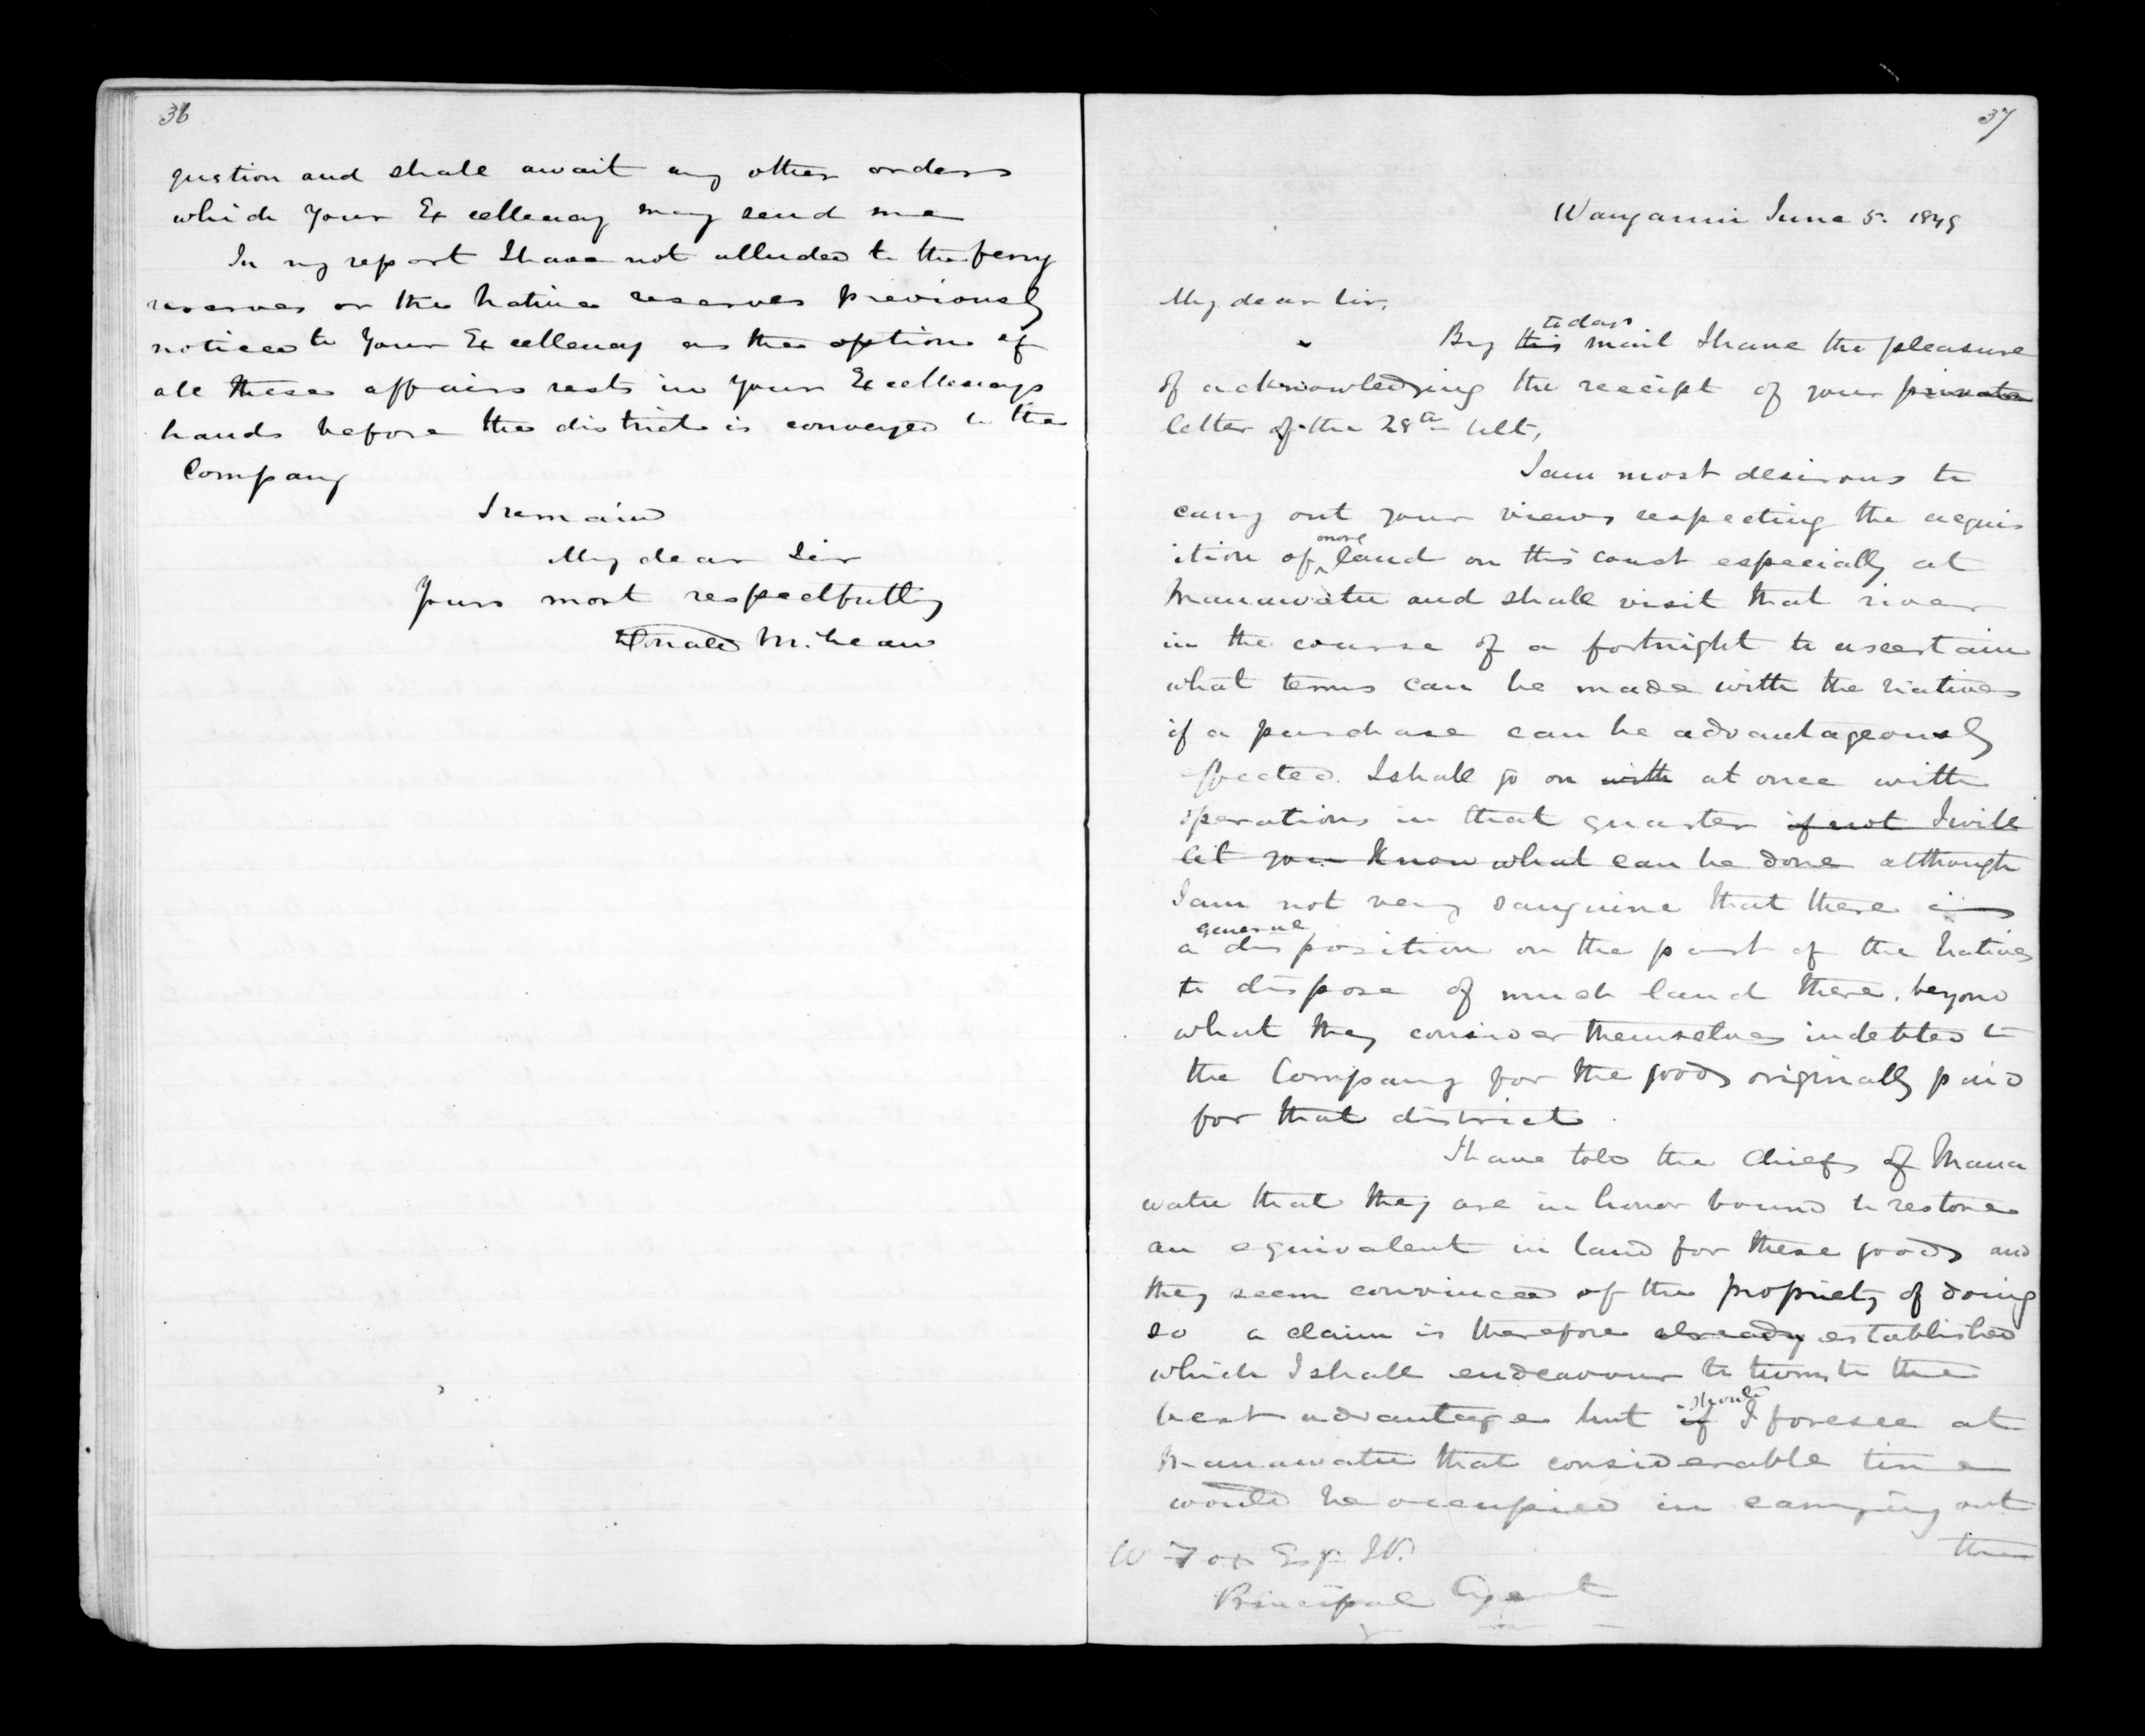 36
question and shall await any other orders
which Your Excellency may send me
In my report I have not alluded to the ferry
reserves or the Native reserves previously
noticed to Your Excellency as the option of
all these affairs rests in Your Excellencys
hands before the district is conveyed to the
Company
I remain
My dear Sir
Yours most respectfully
Donald McLean
37
Wanganui June 5. 1849
My dear Sir,
todays
By this mail I have the pleasure
of acknowledging the receipt of your private
letter of the 28th Ult,
I am most desirous to
carry out your views respecting the acquis
more
ition of land on this coast especially at
Manawatu and shall visit that river
in the course of a fortnight to ascertain
what terms can be made with the natives
if a purchase can be advantageously
effected. I shall go on with at once with
operations in that quarter if not I will
let you know what can be done although
I am not very sanguine that there is
general
a disposition on the part of the Natives
to dispose of much land there, beyond
what they consider themselves indebted to
the Company for the goods originally paid
for that district.
I have told the Chiefs of Mana
watu that they are in honor bound to restore
an equivalent in land for these goods and
they seem convinced of the propriety of doing
so a claim is therefore already established
which I shall endeavour to turn to the
should
best advantage but if I foresee at
Manawatu that considerable time
would be occupied in carrying out
the
W Fox Esqr. J.P.
Principal Agent